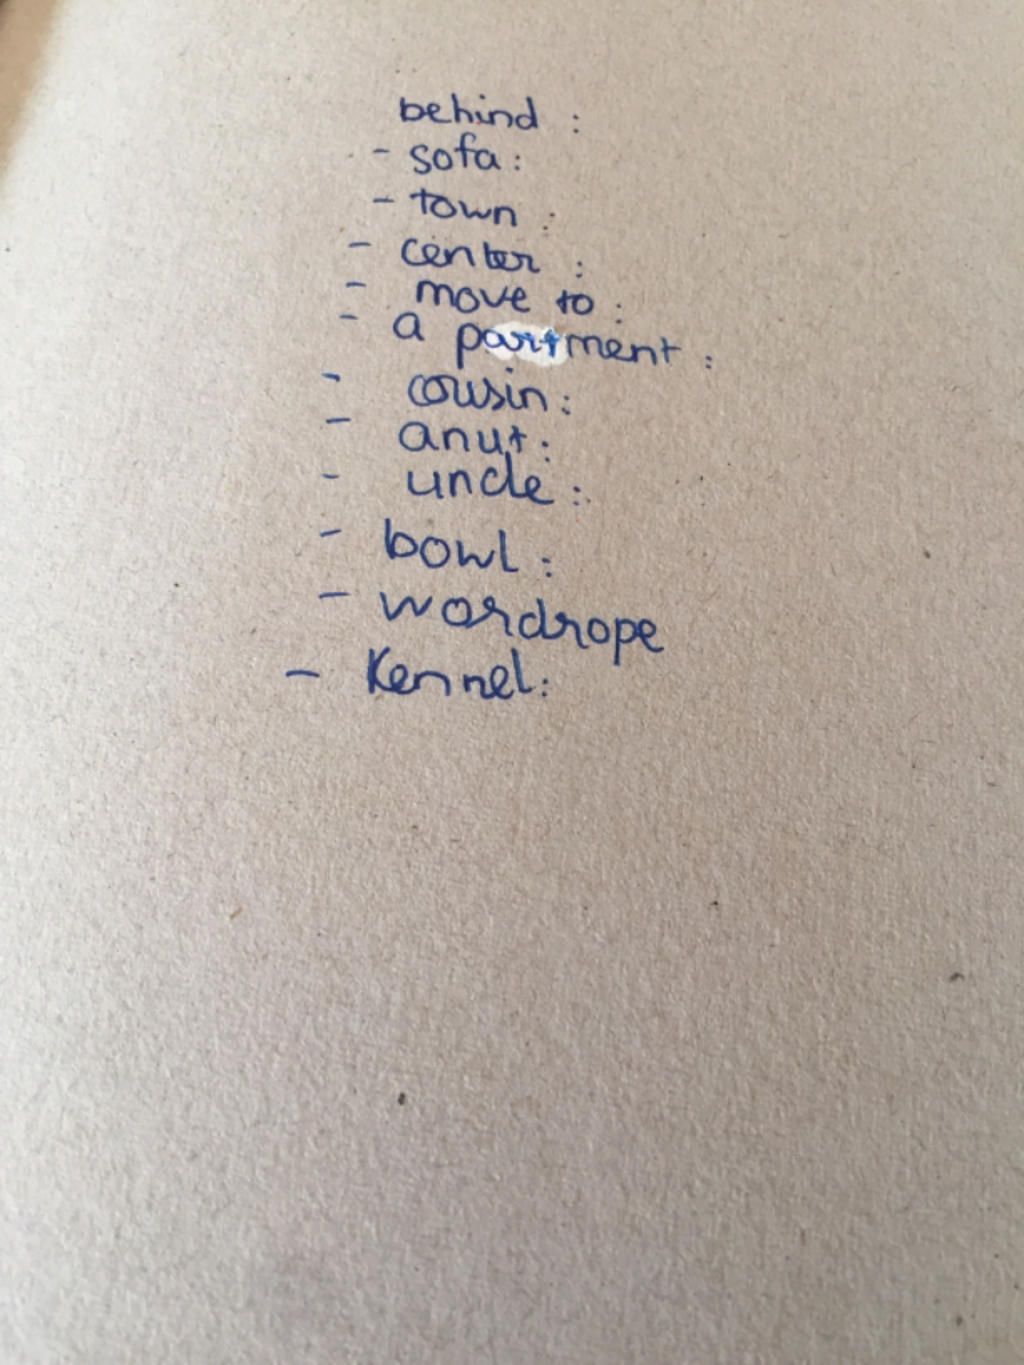 behind :
- sofa :
- town :
- center :
- move to :
- a partment :
- cousin :
- anut :
- uncle :
- bowl :
- wordrope
- Kennel :